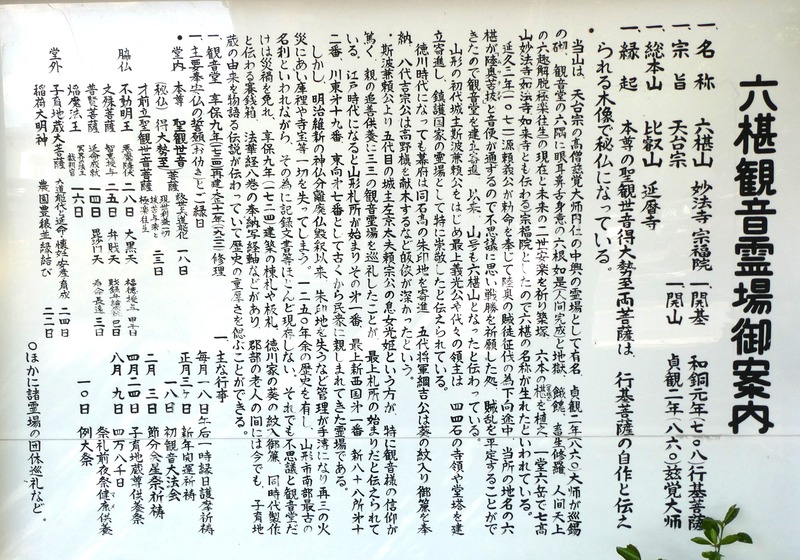 六椹観音霊場御案内
一、名称 六椹山 妙法寺 宗福院 一、開基 和銅元年(七〇八)行基菩薩
一、宗旨 天台宗 一、開山 貞観二年(八六〇)慈覚大師
一、総本山 比叡山 延暦寺
一、縁起 本尊の聖観世音得大勢至両菩薩は、行基菩薩の自作と伝え
られる木像で秘仏になっている。
当山は、天台宗の高僧慈覚大師円仁の中興の霊場として有名 貞観二年(八六〇)大師が巡錫
の砌、観音堂の六隅に眼耳鼻舌身意の六根如是人間完成と地獄、餓鬼、畜生修羅、人間天上
の六趣解脱極楽往生の現在と未来の二世安楽を祈り築塚、六本の椹を植え、一堂六岳で七高
山妙法寺(如法寺)如来寺とも伝える宗福院としたので六椹の名称が生れたといわれている。
延久三年(一〇七一)源頼義公が勅命を奉じて陸奥の賊徒征代の為下向途中、当所の地名の六
椹が陸奥苦抜と音便が通ずるので不思議に思い戦勝を祈願した処、賊乱を平定することがで
きたので観音堂を建立寄進、以来、山号も六椹山となったと伝わっている。
山形の初代城主斯波兼頼公をはじめ最上義光公や代々の領主は 四四石の寺領や堂塔を建
立寄進し、鎮護国家の霊場として特に崇敬したと伝えられている。
徳川時代になっても幕府は同石高の朱印地を寄進 五代将軍綱吉公は葵の紋入り御簾を奉
納、八代吉宗公は高野槇を献木するなど飯依が深かったという。
斯波兼頼公より五代目の城主左京大夫頼宗公の息女光姫という方が、特に観音様の信仰が
篤く、親の追善供養に三三の観音霊場を巡礼したことが、最上札所の始まりだと伝えられて
いる。江戸時代になると山形札所が始まりその第一番、最上新西国第一番 新八十八所第十
二番、川東第十九番 東向第七番として古くから民衆に親しまれてきた霊場である。
しかし、明治維新の神仏分離廃仏毀釈以来、朱印地を失うなど管理が手薄になり再三の火
災にあい庫裡や寺宝等一切を失ってしまう。一二五〇年余の歴史を有し、山形市南部最古の
名刹といわれながら、その為に記録文書等ほとんど現存しない、それでも不思議と観音堂だ
けは災禍を免れ、享保九年(一七二四)建築の棟札や板札、徳川家の葵の紋入御簾、同時代製作
と伝わる賽銭箱、法華経八巻の奉納写経軸などがあり、郡部の老人の間には今でも、子育地
蔵の由来を物語る伝説が伝わっていて歴史の重厚さを偲ぶことができる。
一、観音堂 享保九年(一七二四)再建
一、主要奉安仏の種類(お効き)とご縁日
堂内 本尊 聖観世音
(秘仏) 得大勢至 菩薩
才前立聖観世音菩薩
脇仏 不動明王 悪魔降伏 二八日 大黒天
文殊菩薩 智恵成 二五日 弁戝天
普賢菩薩 延命成就 一四日 毘沙門天
焔魔法王 一六日
堂外 子育地蔵大菩薩 懐妊安産育成 二四日
稲荷大明神 農園豊穣並縁結び 二二日
一、主な行事
毎月一八日午后一時縁日護摩祈祷
正月三ヶ日 新年初運祈祷
一八日 初観音大法会
二月 三日 節分会星祭祈祷
四月二四日 子育地蔵尊供養祭
八月 九日 四万八千日
祭礼前夜祭健康供養
一〇日 例大祭
○ほかに諸霊場の団体巡礼など。